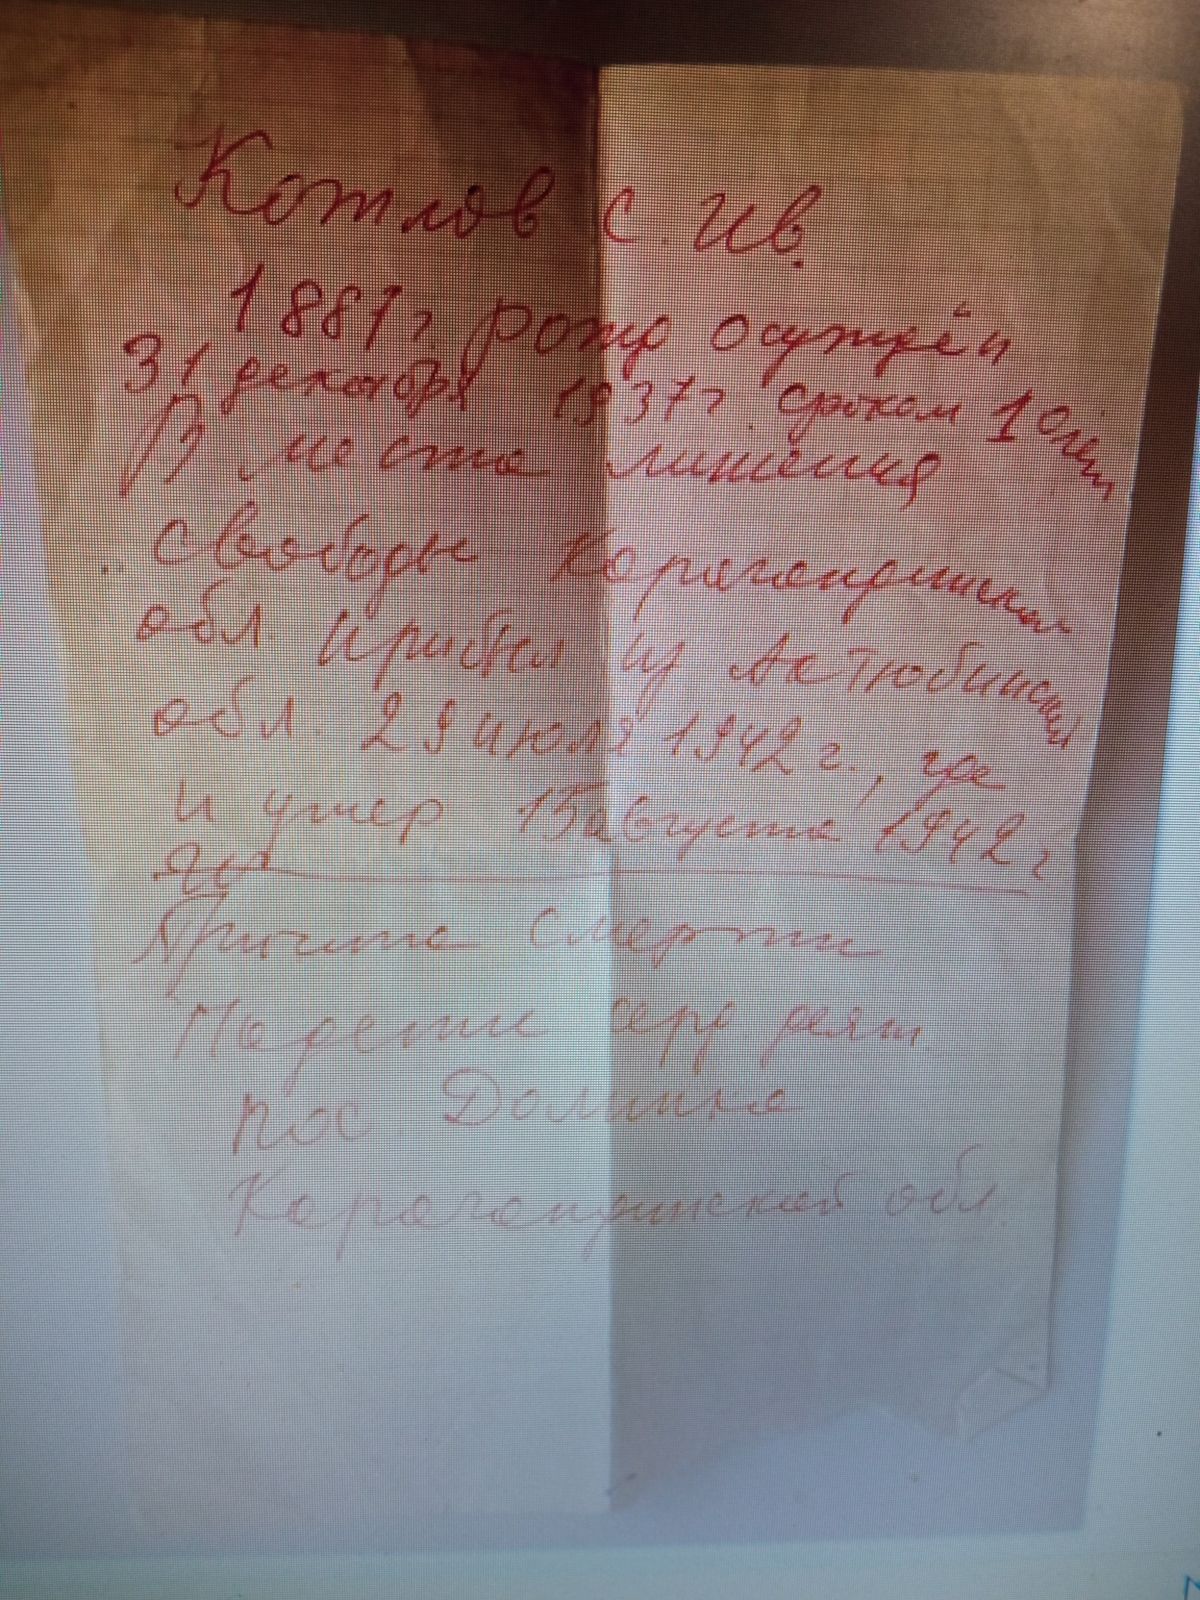 Котлов С. Ив.
1881 г. рожд осуждён
31 декабря 1937 г. сроком 10 лет
В места лишения
свободы Карагандинской
обл. прибыл из Актюбинской
обл. 29 июля 1942 г., где
и умер 15 августа 1942 г
Причина смерти
Падение серд. деят.
пос. Долинка
Карагандинской обл.